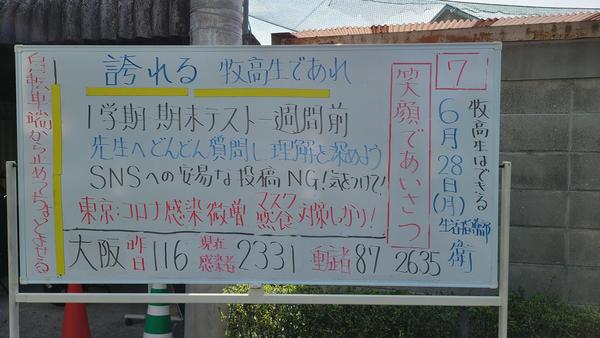 7
牧高生はできる
6月28日(月)
生活指導部
衛
笑顔であいさつ
誇れる 牧高生であれ
1学期 期末テスト一週間前
先生へどんどん質問し 理解を深めよう
SNSへの安易な投稿NG!気をつけて!
東京:コロナ感染微増 マスク 黙食 対策しっかり!
大阪 昨日 116 現在感染者 2331 重症者 87 2635
自転車端から止めて